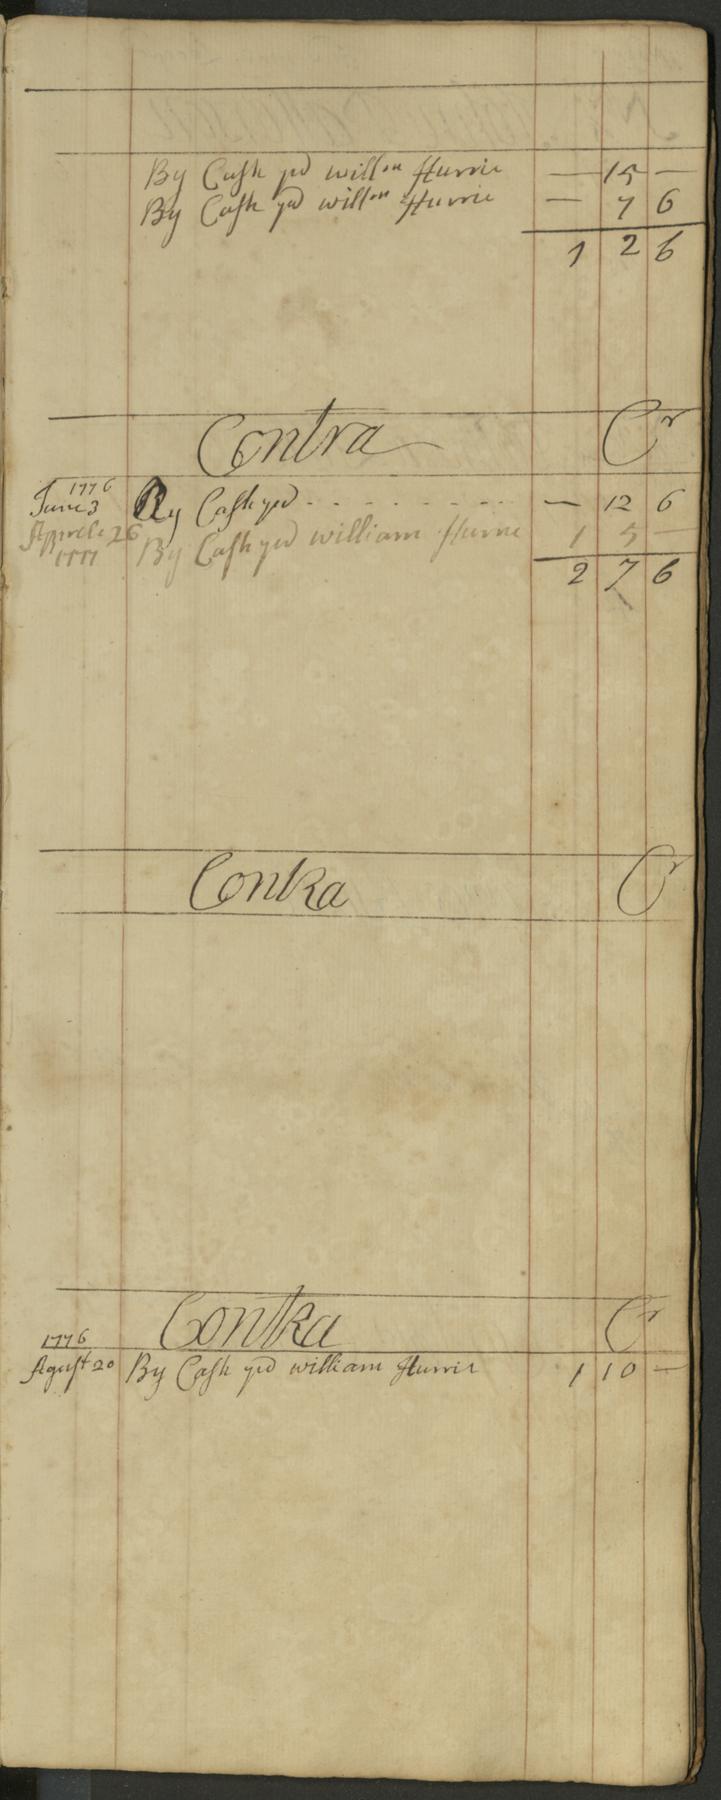 By Cash pd willm Hurrie — 15 —
By Cash pd willm Hurrie — 7 6
1 2 6
Contra Cr
1776
June 3 By Cash pd - - - - - - - - — 12 6
Aprele 26 By Cash pd william Hurrie 1 5 —
1777
2 7 6
Contra Cr
Contra Cr
1776
Agust 20 By Cash pd william Hurrie 1 10 —